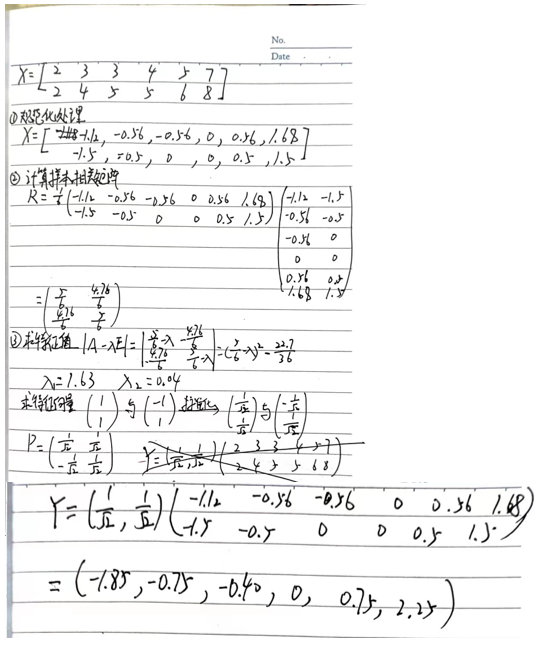 No.
Date
X=[2 3 3 4 5 7
2 4 5 5 6 8]
①规范化处理
X=[-1.12, -0.56, -0.56, 0, 0.56, 1.68
-1.5, -0.5, 0, 0, 0.5, 1.5]
②计算样本相关矩阵
R=1/6(-1.12 -0.56 -0.56 0 0.56 1.68
-1.5 -0.5 0 0 0.5 1.5)(-1.12 -1.5
-0.56 -0.5
-0.56 0
0 0
0.56 0.5
1.68 1.5)
=(5/6 4.76/6
4.76/6 5/6)
③求特征值 |A-λE|=|5/6-λ -4.76/6
-4.76/6 5/6-λ|=(5/6-λ)²-22.7/36
λ₁=1.63 λ₂=0.04
求特征向量(1
1)与(-1
1)标准化→(1/√2
1/√2)与(-1/√2
1/√2)
P=(1/√2 1/√2
-1/√2 1/√2) Y=(1/√2, 1/√2)(2 3 3 4 5 7
2 4 5 5 6 8)
Y=(1/√2, 1/√2)(-1.12 -0.56 -0.56 0 0.56 1.68
-1.5 -0.5 0 0 0.5 1.5)
=(-1.85, -0.75, -0.40, 0, 0.75, 2.25)